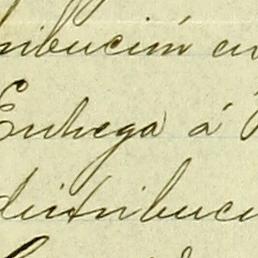 ribución en
Entrega á
distribuci